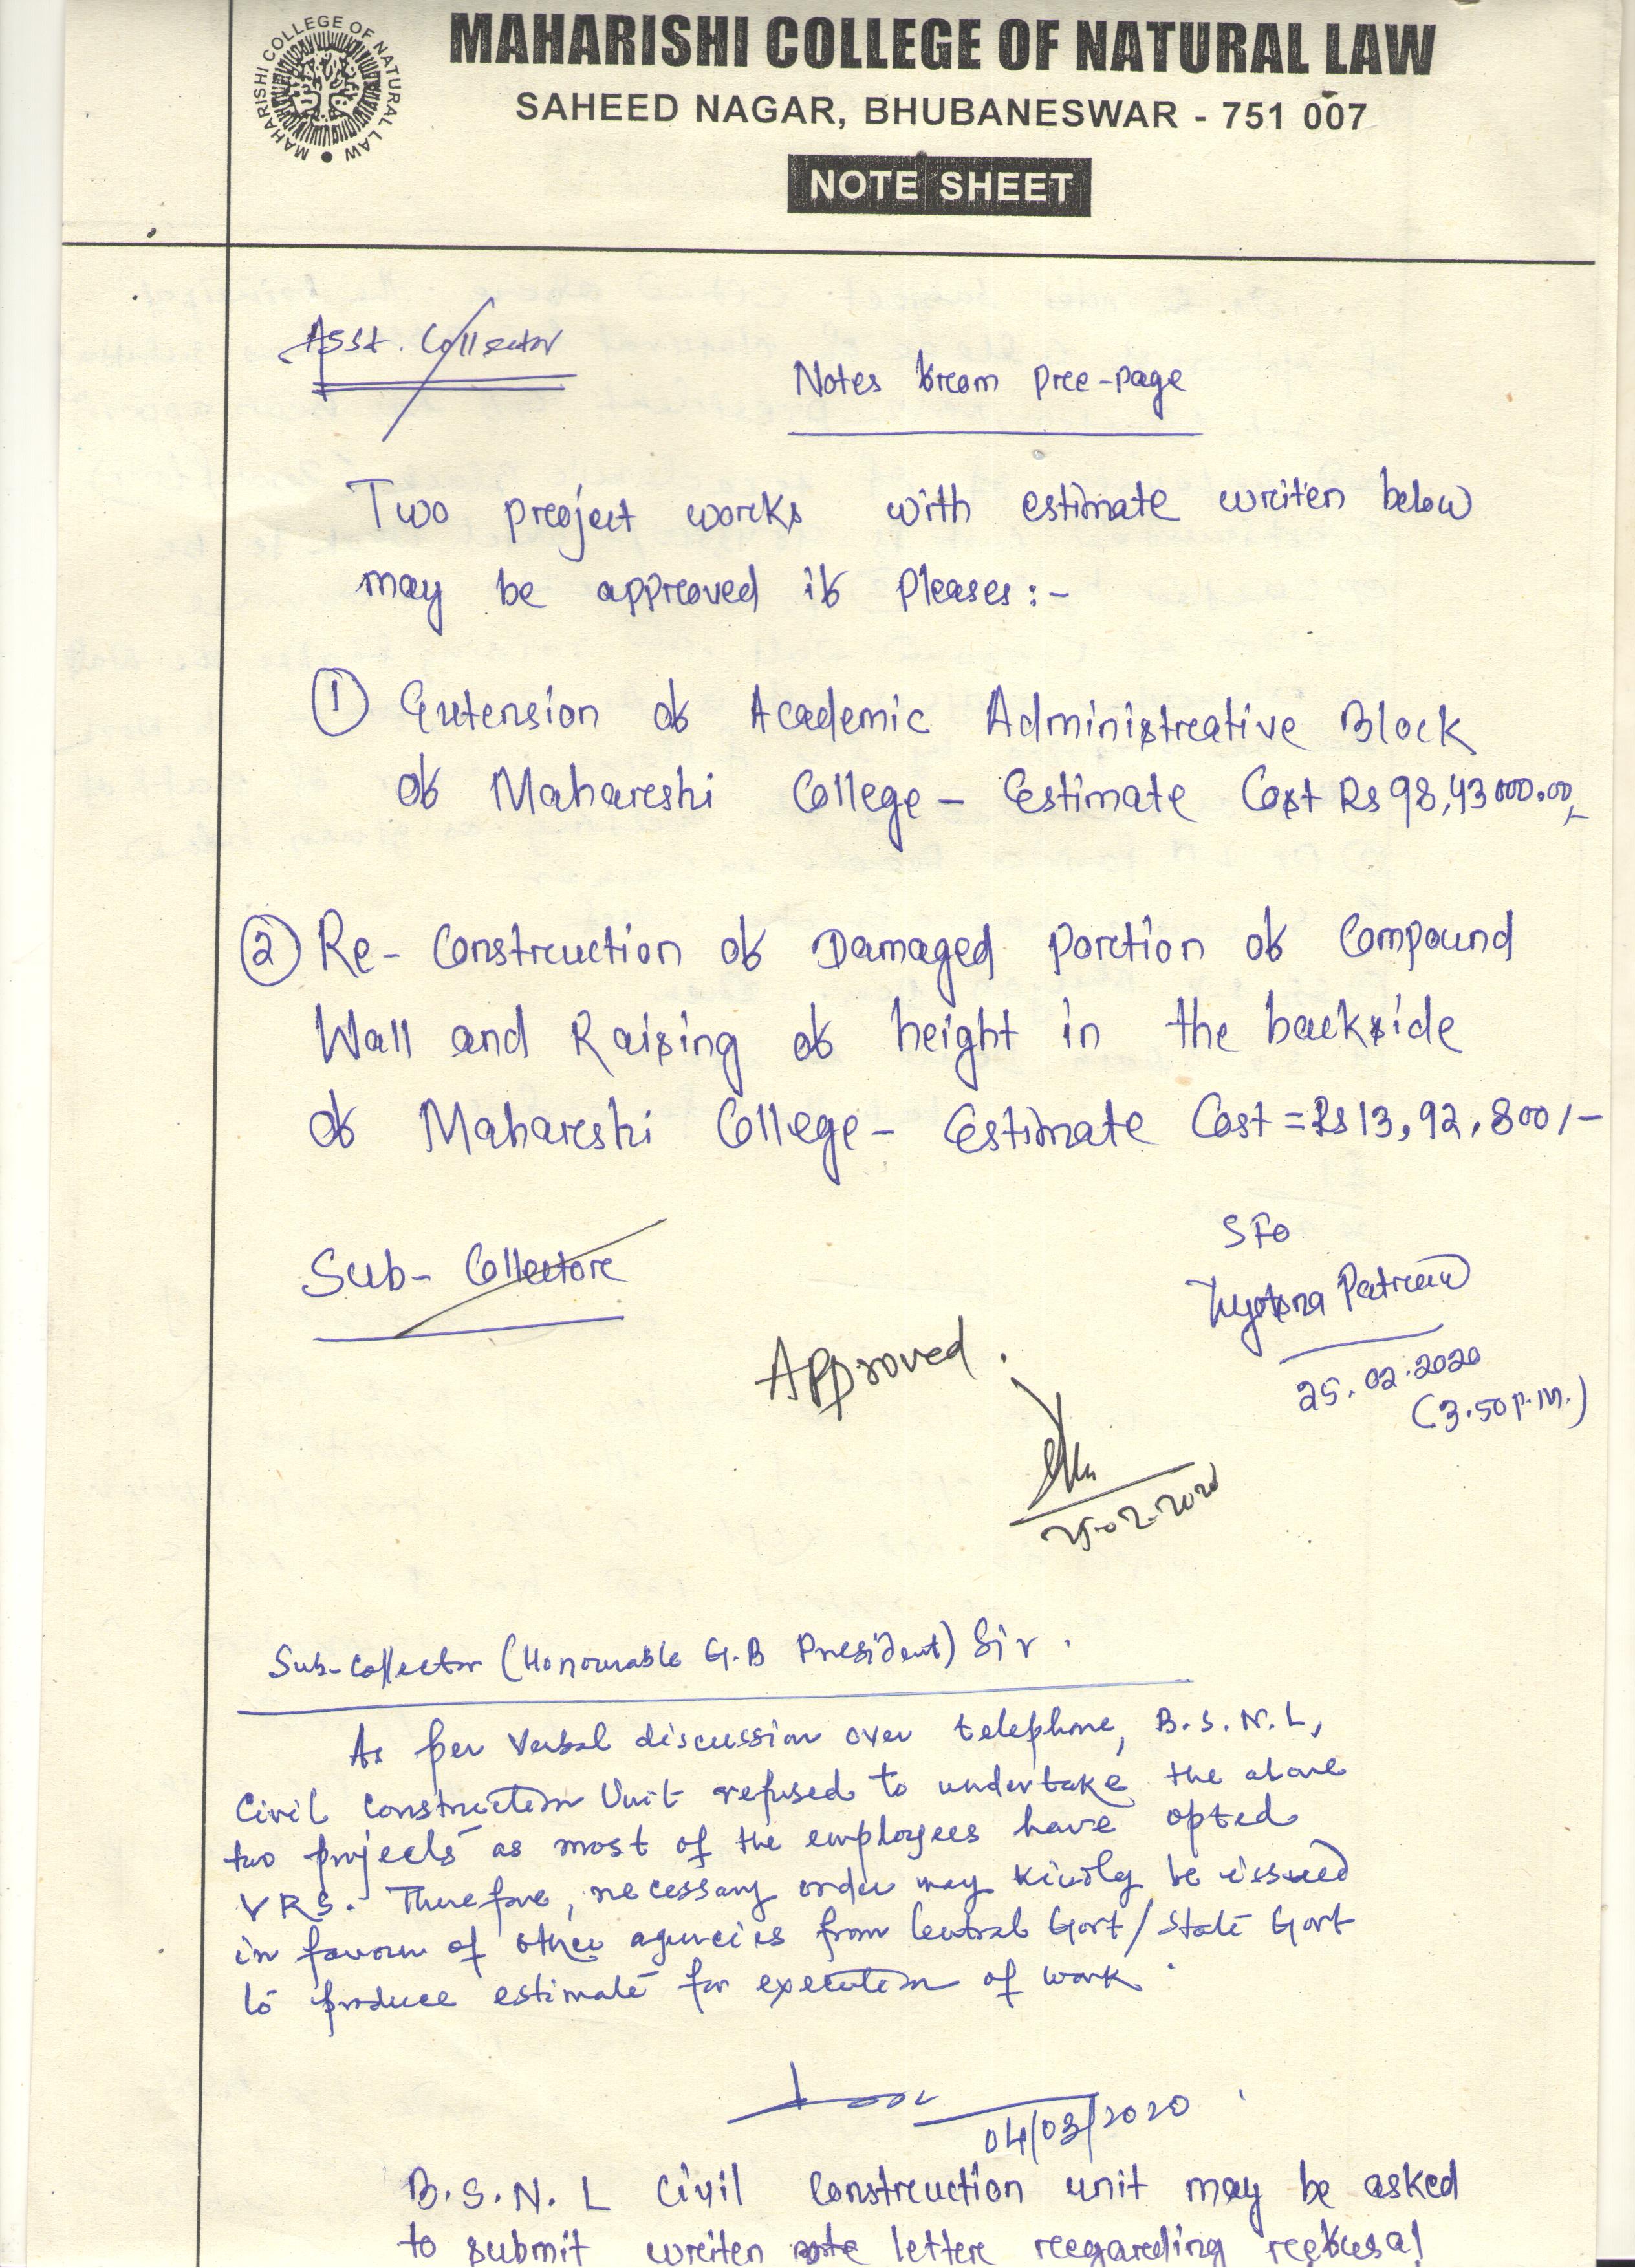 MAHARISHI COLLEGE OF NATURAL LAW
MAHARISHI COLLEGE OF NATURAL LAW
SAHEED NAGAR, BHUBANESWAR - 751 007
NOTE SHEET
Asst. Collector
Notes from pre-page
Two project works with estimate writen below
may be approved if pleases:-
① Extension of Academic Administrative Block
of Mahareshi College - Estimate Cost Rs 98,43000.00/-
② Re-Construction of Damaged portion of Compound
Wall and Raising of height in the backside
of Mahareshi College - Estimate Cost = Rs 13,92,800/-
Sub-Collector
SFO
25.02.2020
(3.50 P.M.)
Approved.
25-02-2020
Sub-Collector (Honourable G.B President) Sir.
As per verbal discussion over telephone, B.S.N.L,
Civil Construction Unit refused to undertake the above
two projects as most of the employees have opted
VRS. Therefore, necessary order may kindly be issued
in favour of other agencies from Central Govt/State Govt
to produce estimate for execution of work.
04/03/2020
B.S.N.L Civil Construction unit may be asked
to submit writen note letter regarding refusal